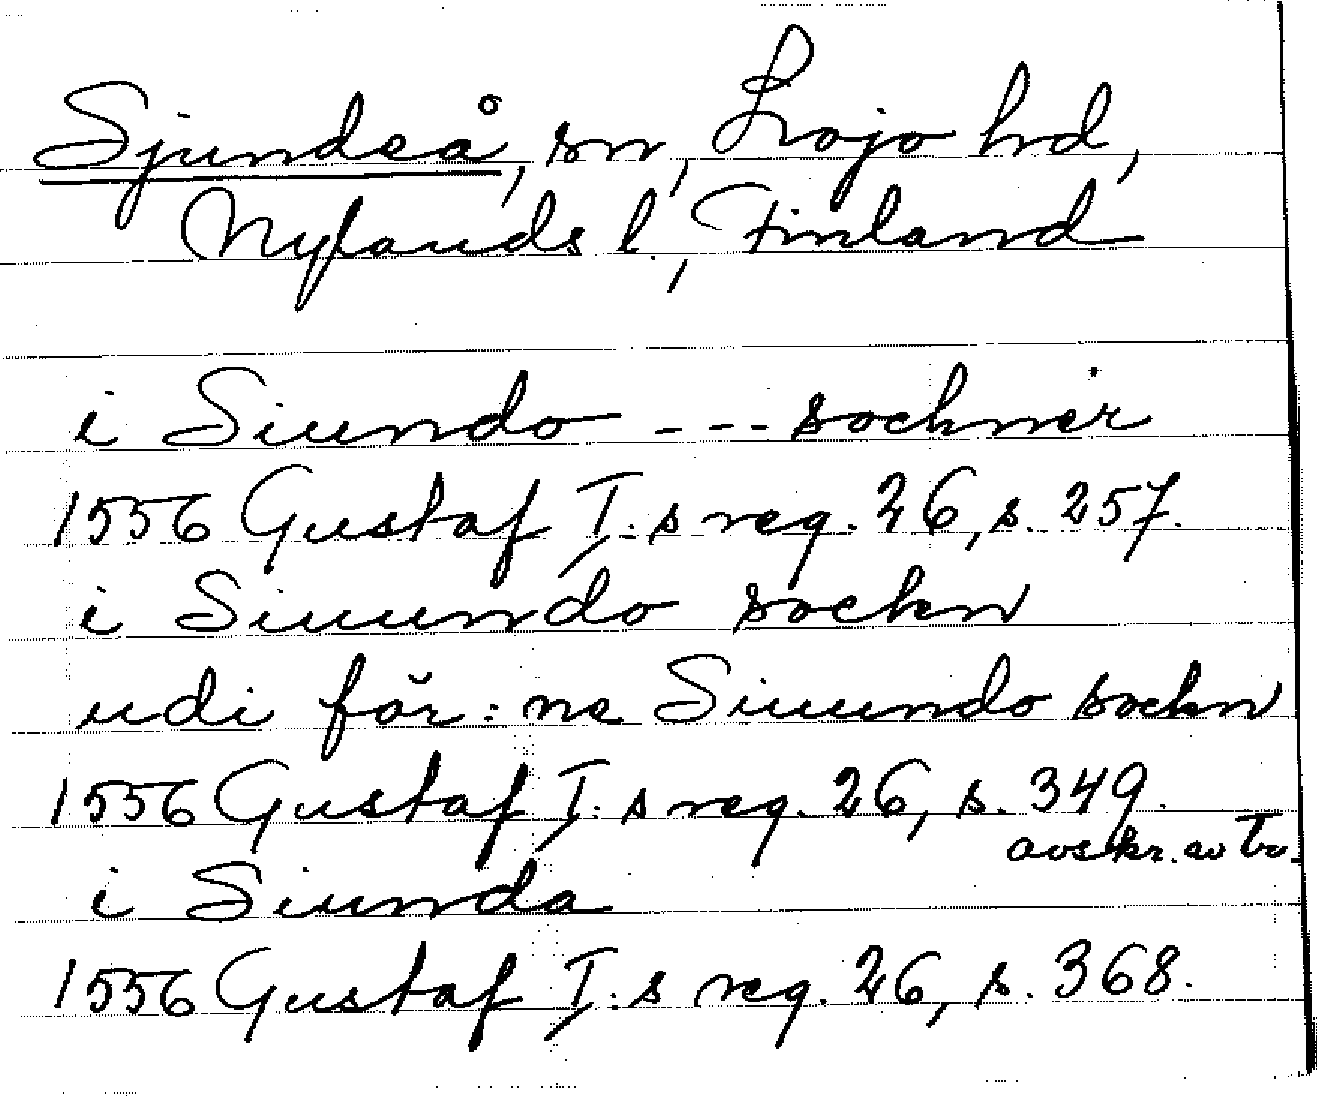 Sjundeå, sn, Lojo hd,
Nylands l., Finland
i Siundo --- sochner
1556 Gustaf I:s reg. 26, s. 257.
i Siuundo sockn
udi för:ne Siuundo sockn
1556 Gustaf I:s reg. 26, s. 349.
avskr. av
i Siunda
1556 Gustaf I:s reg. 26, s. 368.